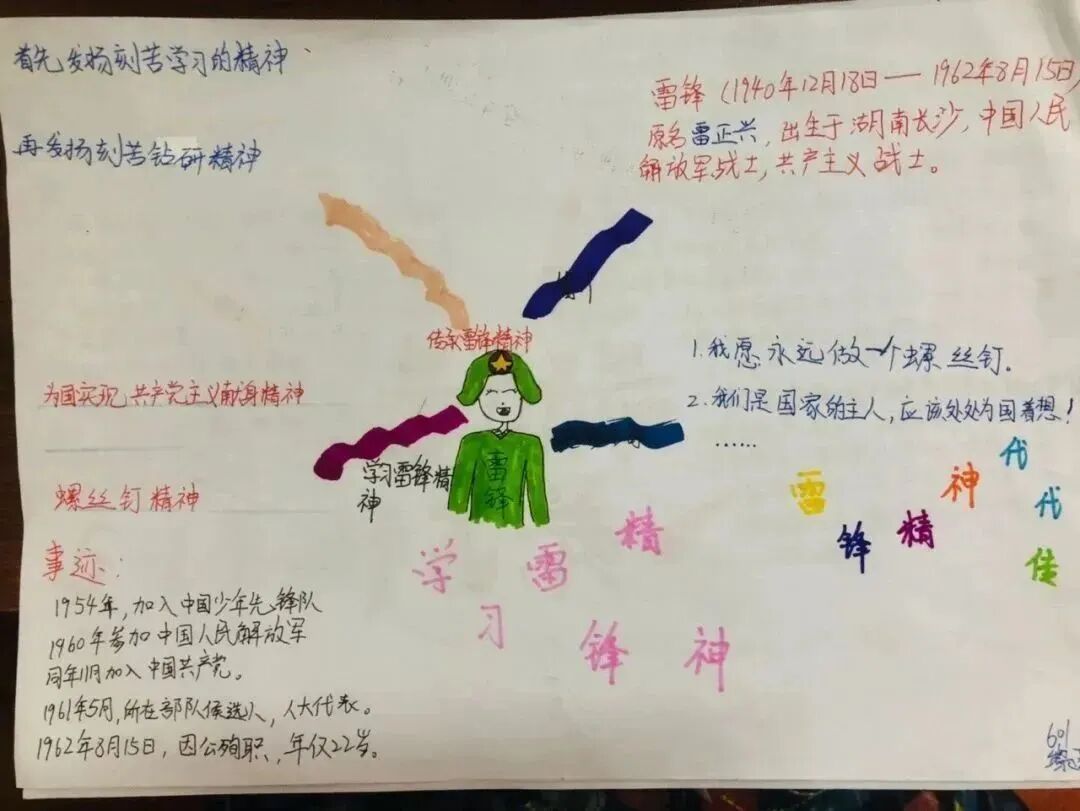 首先发扬刻苦学习的精神、
再发扬刻苦钻研精神
雷锋（1940年12月18日——1962年8月15日）
原名雷正兴，出生于湖南长沙，中国人民
解放军战士，共产主义战士。
传承雷锋精神
为国实现共产党主义献身精神
螺丝钉精神
学习雷锋精
神
雷
锋
1.我愿永远做一个螺丝钉.
2.我们是国家的主人，应该处处为国着想！
……
雷锋精神代代传
学习雷锋精神
事迹：
1954年，加入中国少年先锋队
1960年参加中国人民解放军
同年11月加入中国共产党。
1961年5月，所在部队候选人，人大代表。
1962年8月15日，因公殉职，年仅22岁。
601